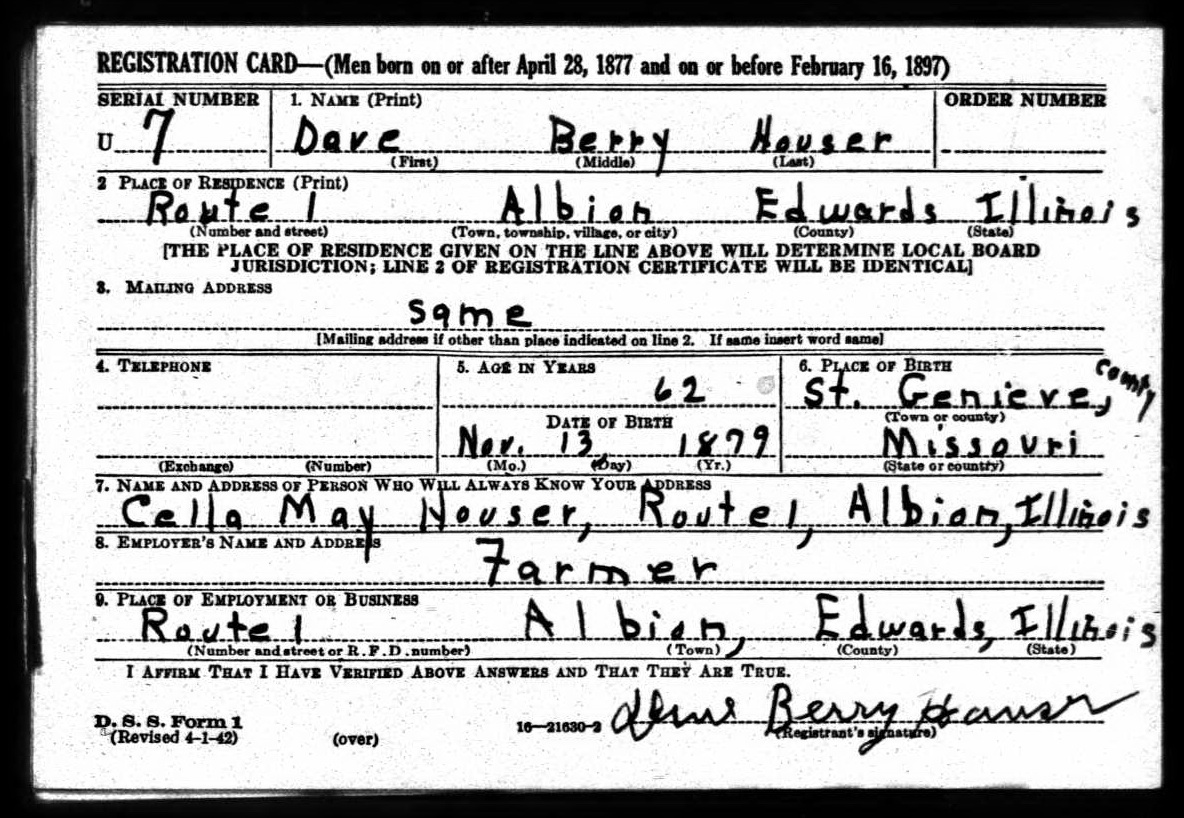 REGISTRATION CARD—(Men born on or after April 28, 1877 and on or before February 16, 1897)
SERIAL NUMBER 1. NAME (Print) ORDER NUMBER
U 7 Dave Berry Houser
(First) (Middle) (Last)
2 PLACE OF RESIDENCE (Print)
Route 1 Albion Edwards Illinois
(Number and street) (Town, township, village, or city) (County) (State)
[THE PLACE OF RESIDENCE GIVEN ON THE LINE ABOVE WILL DETERMINE LOCAL BOARD
JURISDICTION; LINE 2 OF REGISTRATION CERTIFICATE WILL BE IDENTICAL]
3. MAILING ADDRESS
same
[Mailing address if other than place indicated on line 2. If same insert word same]
4. TELEPHONE 5. AGE IN YEARS 6. PLACE OF BIRTH
62 St. Genieve, County
DATE OF BIRTH (Town or county)
Nov. 13 1879 Missouri
(Exchange) (Number) (Mo.) (Day) (Yr.) (State or country)
7. NAME AND ADDRESS OF PERSON WHO WILL ALWAYS KNOW YOUR ADDRESS
Cella May Houser, Route 1, Albion, Illinois
8. EMPLOYER'S NAME AND ADDRESS
Farmer
9. PLACE OF EMPLOYMENT OR BUSINESS
Route 1 Albion, Edwards, Illinois
(Number and street or R. F. D. number) (Town) (County) (State)
I AFFIRM THAT I HAVE VERIFIED ABOVE ANSWERS AND THAT THEY ARE TRUE.
D. S. S. Form 1
(Revised 4-1-42) (over) 16—21630-2 Berry Houser
(Registrant's signature)